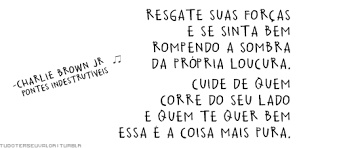 RESGATE SUAS FORÇAS
E SE SINTA BEM
ROMPENDO A SOMBRA
DA PRÓPRIA LOUCURA.
CUIDE DE QUEM
CORRE DO SEU LADO
E QUEM TE QUER BEM
ESSA É A COISA MAIS PURA.
-CHARLIE BROWN JR ♫
PONTES INDESTRUTÍVEIS